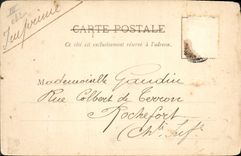 Imprimé
CARTE POSTALE
Ce côté est exclusivement réservé à l'adresse.
Mademoiselle Gaudin
Rue Colbert de Terron
Rochefort
(Ch<sup>te</sup> Inf<sup>re</sup>)